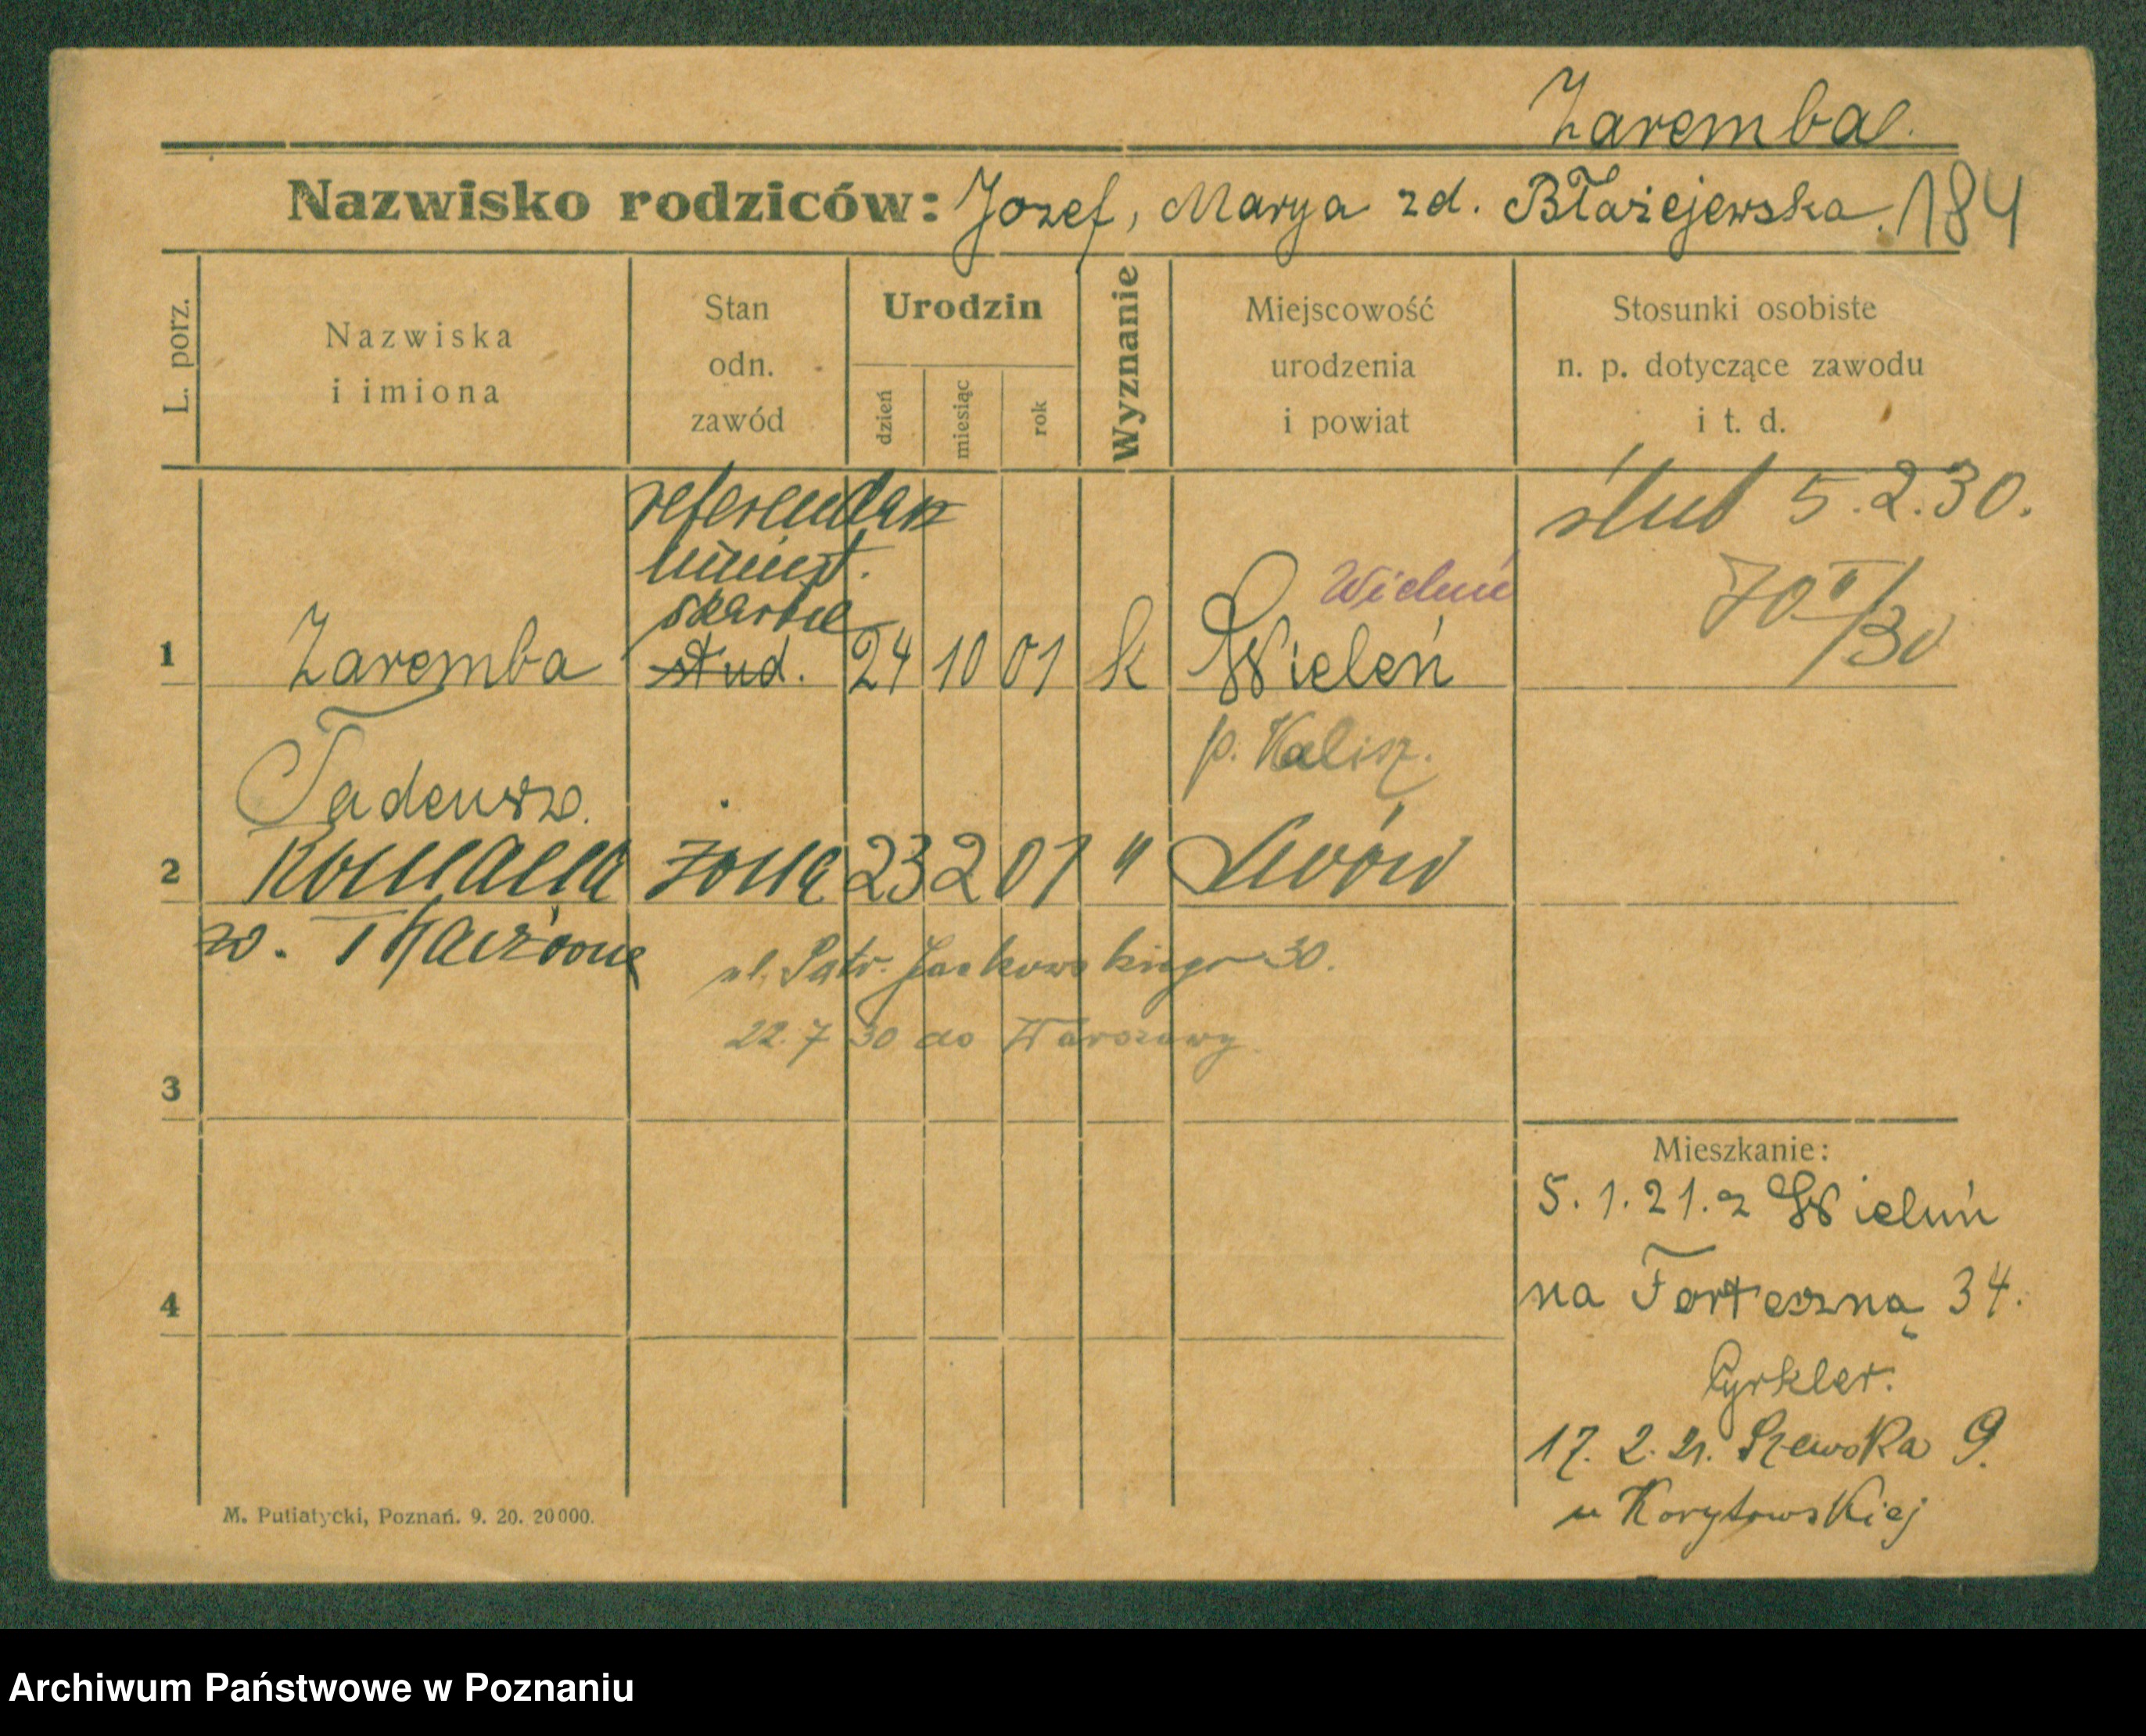 Zaremba.
Nazwisko rodziców: Jozef, Marya zd. Błażejewska. 184
L. porz.
Nazwiska
i imiona
Stan
odn.
zawód
Urodzin
dzień
miesiąc
rok
Wyznanie
Miejscowość
urodzenia
i powiat
Stosunki osobiste
n. p. dotyczące zawodu
i t. d.
referendarz
minist.
skarbu
ślub 5.2.30.
70 II/30
Wieluń
1 Zaremba stud. 24 10 01 k Wieleń
p. Kalisz.
Tadeusz.
2 Romana żona 23 2 01 " Lwów
ul. Patr. Jackowskiego 30.
22.7 30 do Warszawy
3
Mieszkanie:
5.1.21. z Wieluń
na Forteczną 34.
4
Cyrkler.
17. 2. 21. Szewska 9.
u Korytowskiej
M. Putiatycki, Poznań. 9. 20. 20000.
Archiwum Państwowe w Poznaniu